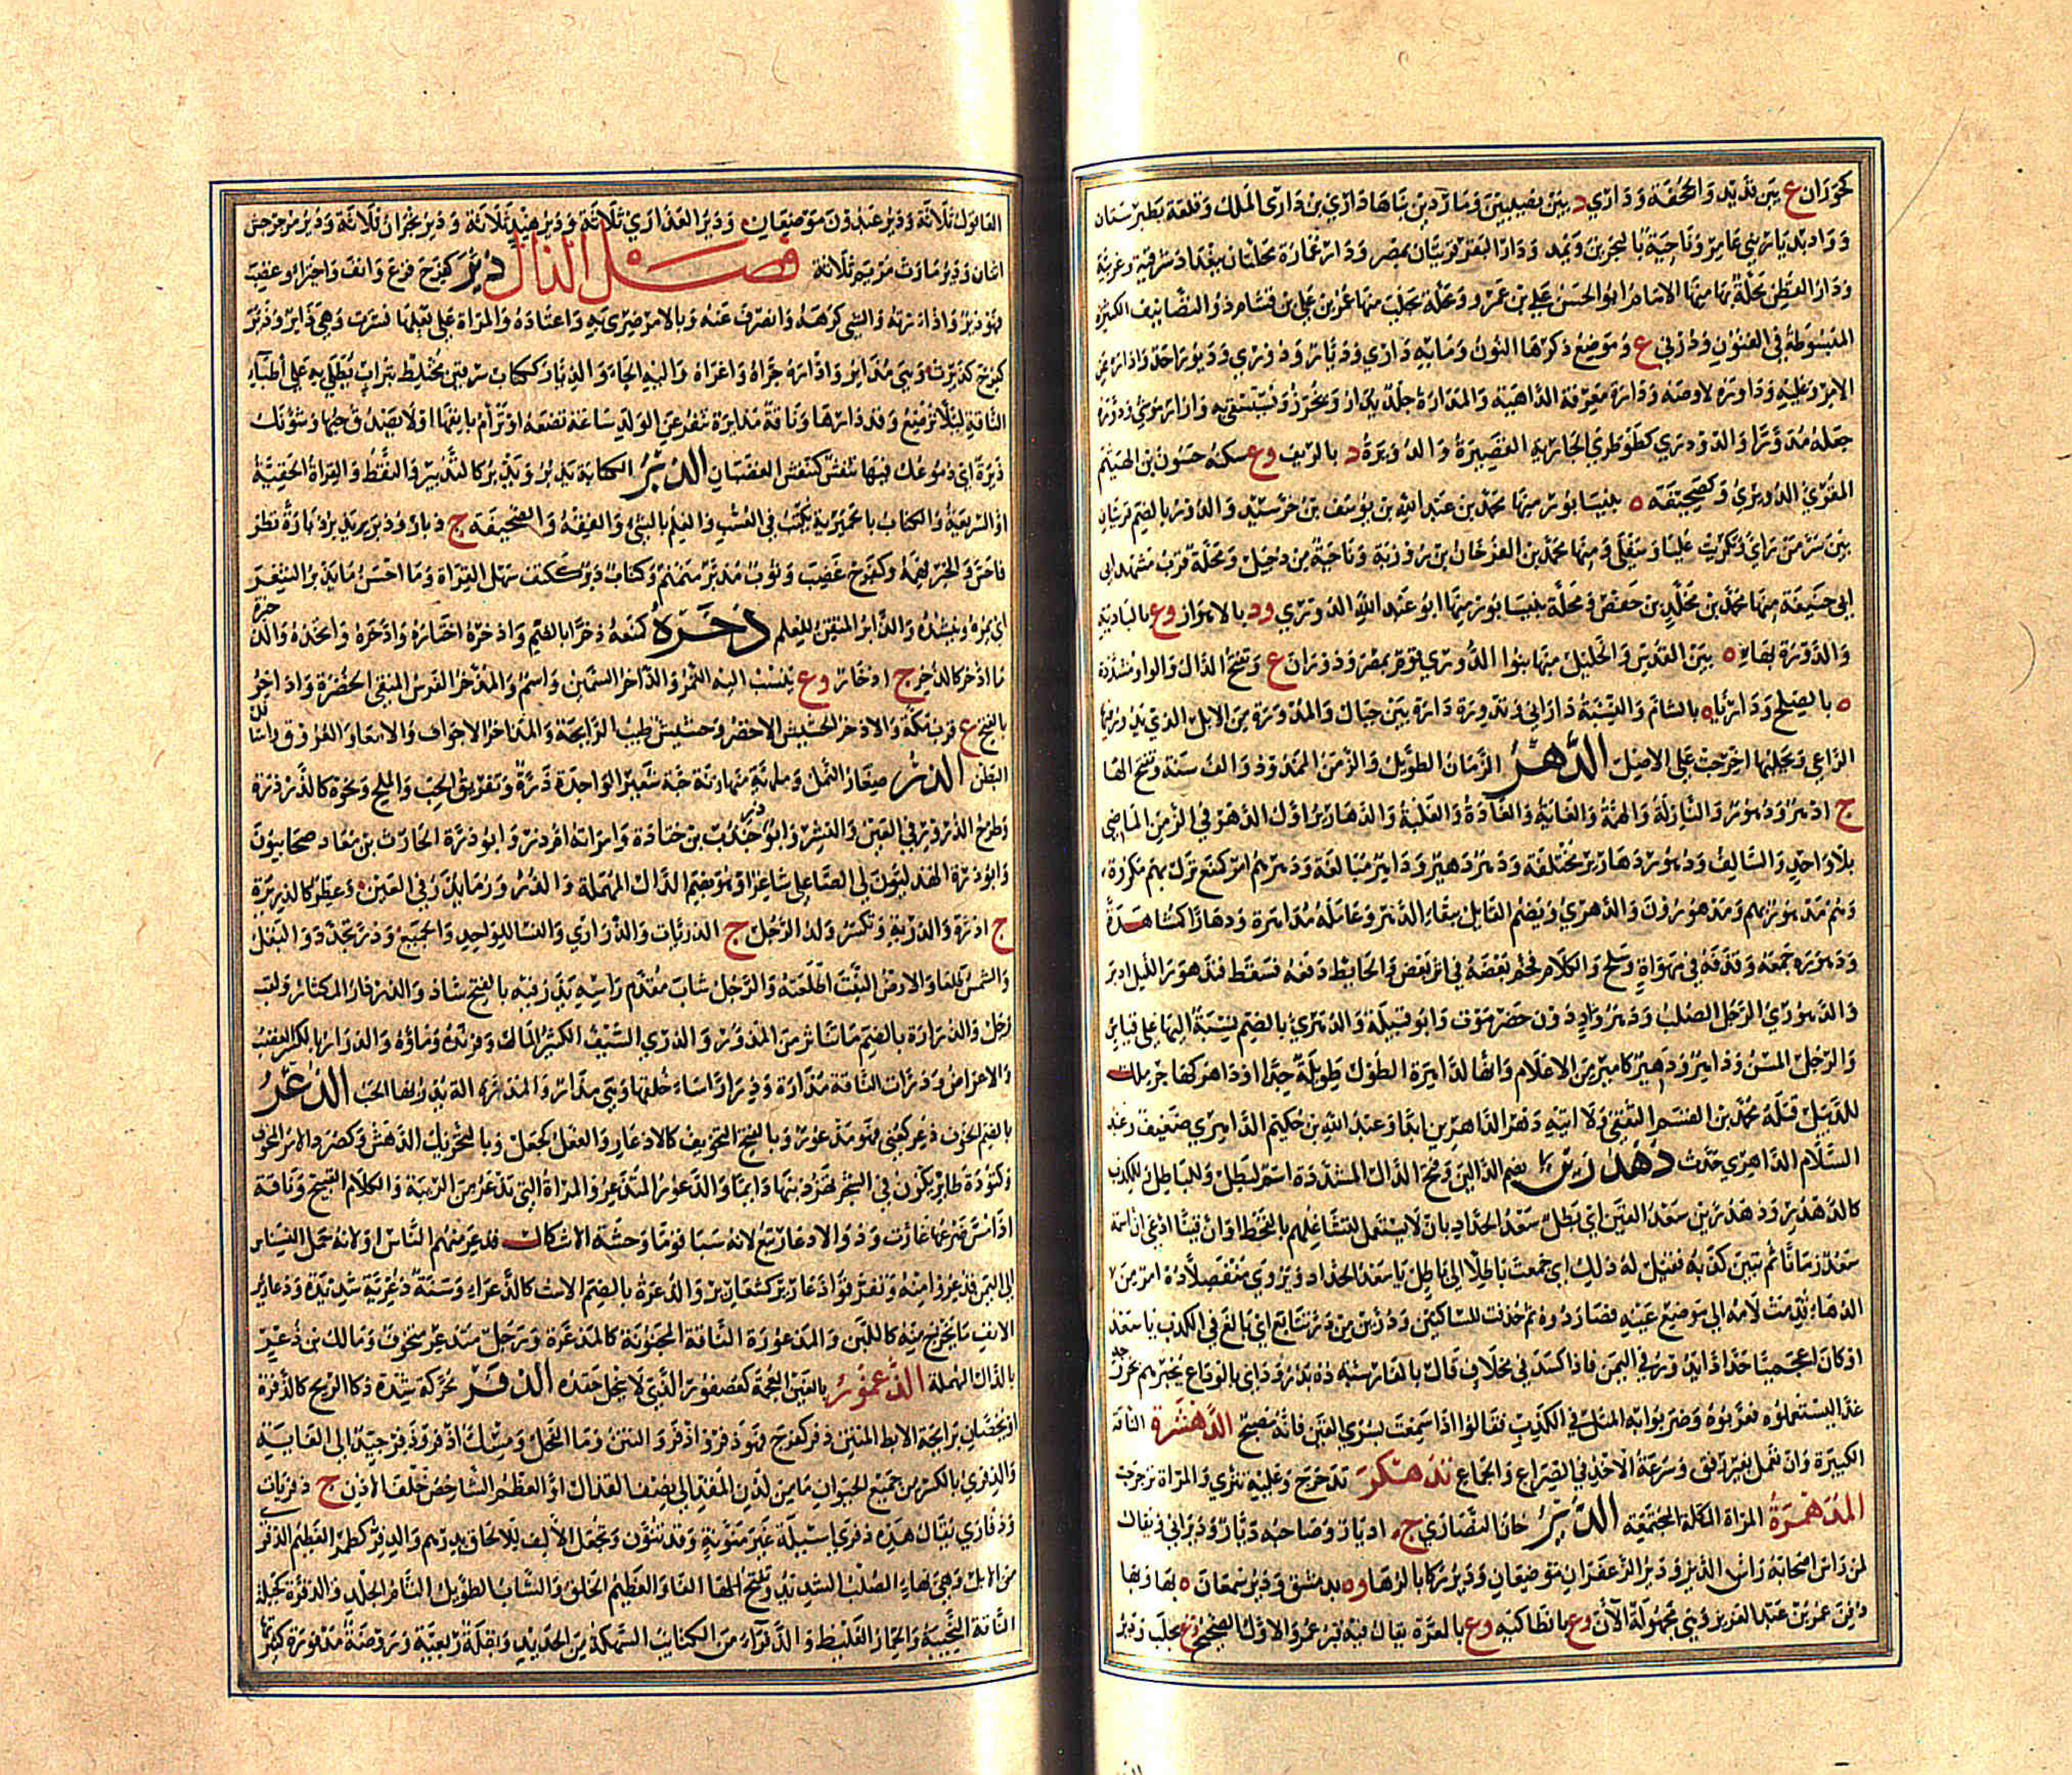 كحوران ع بين تدليد والحفة ودارى د بين نصيبين وماردين بناها دارى بن دارى الملك وقلعة بطبرستان
وواد بديار بني عامر وناحية بالبحرين ويمد ودار البقر قريتان بمصر ودار عمارة محلتان ببغداد شرقية وغربية
ودار القطن محلة بها منها الامام ابو الحسن علي بن عمر ومحلة بحلب منها عمر بن علي بن قشام ذو التصانيف الكثيرة
المبسوطة في الفنون ودرني ع وموضع ذكرها النون وما به داري وديار ودوري وديور احد واداره عن
الامر وعليه وداوره لاوصه ودارة معرفة الداهية والمدارة جلد يدار ويخرز ويستقى به وازار موشى ودوره
جعله مدورا والدودري كطوطري الجارية القصيرة والدويرة د بالريف وع سكنه حسون بن الهيثم
المقرئ الدويري وكصحيفة ه بنيسابور منها محمد بن عبد الله بن يوسف بن خرشيد والدور بالضم قريتان
بين سر من راى وتكريت عليا وسفلى ومنها محمد بن الفرخان بن روزبة وناحية من دجيل ومحلة قرب مشهد ابى
ابى حنيفة منها محمد بن مخلد بن حفص ومحلة بنيسابور منها ابو عبد الله الدوري ود بالاهواز وع بالبادية
والدورة بهاء ه بين القدس والخليل منها بنوا الدوري قوم بمصر ودوران ع وبفتح الدال والواو مشددة
ه بالصلح وداريا ه بالشام والنسبة داراني وتدورة دارة بين جبال والمدورة من الابل التي يدور فيها
الراعي ويحلبها اخرجت على الاصل الدهر الزمان الطويل والزمن الممدود والف سنة وتفتح الهاء
ج ادهر ودهور والنازلة والهمة والغاية والعادة والغلبة والدهارير اول الدهر في الزمن الماضي
بلا واحد والسالف ودهور دهارير مختلفة ودهر دهير وداهر مبالغة ودهرهم امر كمنع نزل بهم مكروه
وهم مدهور بهم ومدهورون والدهري ويضم القائل ببقاء الدهر وعامله مداهرة ودهارا كمشاهرة
ودهوره جمعه وقذفه في مهواة وسلح والكلام فخم بعضه في اثر بعض والحائط دفعه فسقط فتدهور الليل ادبر
والدهوري الرجل الصلب ودهر واد دون حضرموت وابو قبيلة والدهري بالضم نسبة اليها على قياس
والرجل المسن وداهر ودهير كامير من الاعلام وانها لداهرة الطول طويلة جدا وداهر كصاحب ملك
للديبل قتله محمد بن القسم الثقفي ولا اتيه دهر الداهرين ابدا وعبد الله بن حكيم الداهري ضعيف وعبد
السلام الداهري حدث دهدرين بضم الدالين وفتح الدال المشددة اسم لبطل وللباطل وللكذب
كالدهدر ودهدرين سعد القين اي بطل سعد الحداد بان لا يستعمل لتشاغلهم بالقحط او ان قينا ادعى ان اسمه
سعد زمانا ثم تبين كذبه فقيل له ذلك اي جمعت باطلا الى باطل يا سعد الحداد ويروى منفصلا ده امر من
الدهاء قدمت لامه الى موضع عينه فصار دوه ثم حذفت للساكنين ودرين من در تتابع اي بالغ في الكذب يا سعد
او كان اعجميا حدادا يدور في اليمن فاذا كسد في مخلاف قال بالفارسية ده بدرود اي بالوداع يخبرهم بخروجه
غدا ليستعملوه فعربوه وضربوا به المثل في الكذب فقالوا اذا سمعت بسرى القين فانه مصبح الدهشرة الناقة
الكبيرة وان تعمل بغير رفق وسرعة الاخذ في الصراع والجماع تدهكر تدحرج وعليه تنزى والمراة ترجرجت
المدهمرة المراة المكتلة المجتمعة الدير خان النصارى ج اديار وصاحبه ديار وديراني ويقال
لمن راس اصحابه راس الدير ودير الزعفران موضعان ودير زكا بالرها وه بدمشق ودير سمعان ه بها وبها
دفن عمر بن عبد العزيز وهي مجهولة الآن وع بانطاكية وع بالمعرة يقال فيه قبر عمر والاول الصحيح وع بحلب ودير
العاقول ثلاثة ودير عبدون موضعان ودير العذارى ثلاثة ودير هند ثلاثة ودير نجران ثلاثة ودير مرجرجس
اثنان ودير مارت مريم ثلاثة فصل الذال ذئر كفرح فزع وانف واجترا وغضب
فهو ذئر واذاره والشي كرهه وانصرف عنه وبالامر ضرى به واعتاده والمراة على بعلها نشزت وهي ذائر وذئر
كفرح كذأرت وهي مذائر واذاره جراه واغراه واليه الجاه والذئار ككتاب سرقين مختلط بتراب يطلى به على اطباء
الناقة لئلا ترضع وقد ذارها وناقة مذائرة تنفر عن الولد ساعة تضعه او ترام بانفها ولا يصدق حبها وشؤنك
ذئرة اي دموعك فيها تنفش كتنفش الغضبان الذبر الكتابة يذبر ويذبر كالتذبير والنقط والقراة الخفية
او السريعة والكتاب بالحميرية يكتب في العسب والعلم بالشى والفقه والصحيفة ج ذبار وذبر يذبر ذبارة نظر
فاحسن والخبر فهمه وكفرح غضب وثوب مذبر منمنم وكتاب ذبر ككتف سهل القراة وما احسن ما يذبر الشعر
اي يمره وينشده والذابر المتقن للعلم ذخره كمنعه ذخرا بالضم واذخره اختاره واذخره واتخذه والذخيرة
ما اذخر كالذخر ج اذخار وع ينسب اليه التمر والذاخر السمين واسم والمذخر الفرس المبقى لحضره واذاخر
بالفتح ع قرب مكة والاذخر الحشيش الاخضر وحشيش طيب الرائحة والمذاخر الاجواف والامعاء والعروق واسافل
البطن الذر صغار النمل ومائة منها زنة حبة شعير الواحدة ذرة وتفريق الحب والملح ونحوه كالذرذرة
وطرح الذرور في العين والنشر وابو ذر جندب بن جنادة وامراته ام ذر وابو ذرة الحارث بن معاذ صحابيون
وابو ذرة الهذلي شاعر او هو بضم الدال المهملة والذرور وما يذر في العين وعطر كالذريرة
ج اذرة والذرية وتكسر ولد الرجل ج الذريات والذراري والنساء للواحد والجميع وذر تخدد والبقل
والشمس طلعا والارض النبت اطلعته والرجل شاب مقدم راسه يذر فيه بالفتح شاذ والذرذار المكثار ولقب
رجل والذرارة بالضم ما تناثر من الذرور والذري السيف الكثير الماء وفرنده وماؤه والذرار بالكسر الغضب
والاعراض وذرت الناقة مذارة وذرارا ساء خلقها وهي مذار والمذرة الة يذر بها الحب الذعر
بالضم الخوف ذعر كعني فهو مذعور وبالفتح التخويف كالاذعار والفعل كجعل وبالتحريك الدهش وكصرد الامر المخوف
وكتؤدة طائر يكون في الشجر تهز ذنبها دائما والذعور المتذعر والمراة التي تذعر من الريبة والكلام القبيح وناقة
اذا مس ضرعها غارت وذو الاذعار تبع لانه سبا قوما وحشة الاشكال فذعر منهم الناس او لانه حمل النسناس
الى اليمن فذعروا منه وتفرقوا ذعارير كشعارير والذعرة بالضم الاست كالذعراء وسنة ذعرية شديدة وذعائر
الانف ما يخرج منه كاللبن والمذعورة الناقة المجنونة كالمذعرة ورجل متذعر متخوف ومالك بن ذعر
بالدال المهملة الذغمور بالغين المعجمة كعصفور الذي لا ينحل حقده الذفر محركة شدة ذكا الريح كالذفرة
او يخصان برائحة الابط المنتن ذفر كفرح فهو ذفر واذفر والنتن وماء الفحل ومسك اذفر وذفر جيد الى الغاية
والذفرى بالكسر من جميع الحيوان ما من لدن المقذ الى نصف القذال او العظم الشاخص خلف الاذن ج ذفريات
وذفاري يقال هذه ذفرى اسيلة غير منونة وقد تنون وتجعل الالف للالحاق بدرهم والذفر كطمر العظيم الذفرى
من الابل وهي بهاء الصلب الشديد وتفتح الفاء والعظيم الخلق والشاب الطويل التام الجلد والذفرة كخبلة
الناقة النجيبة والحمار الغليظ والذفراء من الكتائب السهكة من الحديد وبقلة ربعية وروضة مذفورة كثيرتها